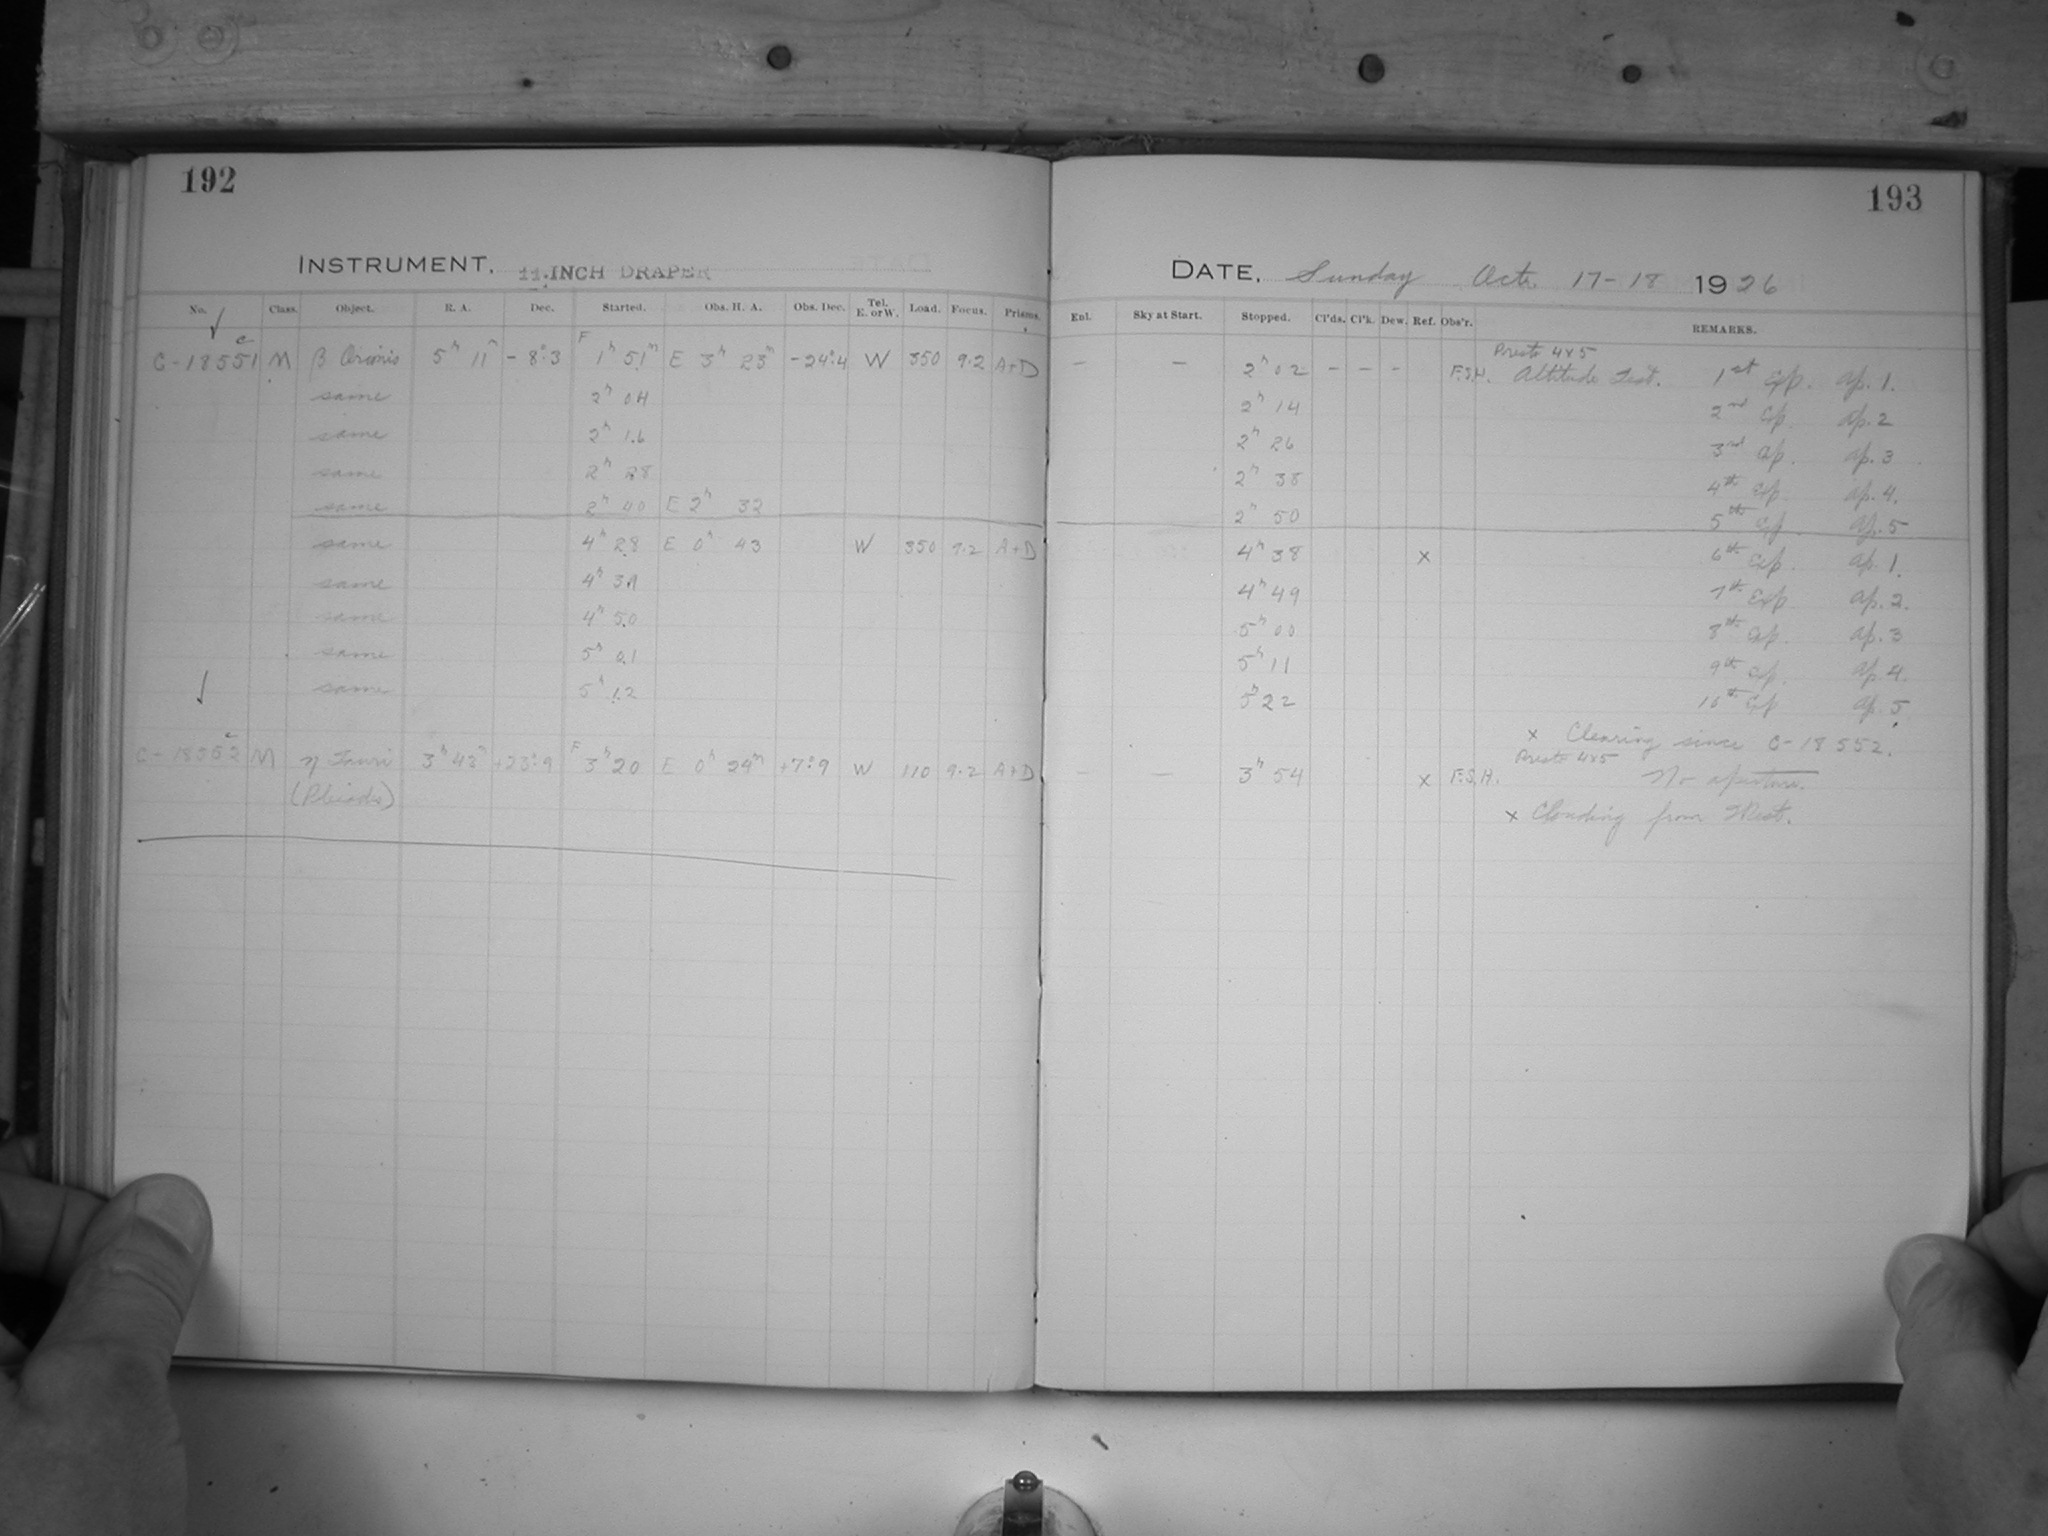 192
INSTRUMENT. 11-INCH DRAPER
No. Class. Object. R. A. Dec. Started. Obs. H. A. Obs. Dec. Tel. E. or W. Load. Focus. Prisms.
C-18551 M β Orionis 5h 11m -8°.3 F 1h 51m E 3h 23m -24°.4 W 350 9.2 A+D
same 2h 04
same 2h 16
same 2h 28
same 2h 40 E 2h 32
same 4h 28 E 0h 43 W 350 9.2 A+D
same 4h 39
same 4h 50
same 5h 01
same 5h 12
C-18552 M η Tauri 3h 43m +23°.9 F 3h 20 E 0h 29m +7°.9 W 110 9.2 A+D
(Pleiades)
193
DATE, Sunday Oct. 17-18 1926
Enl. Sky at Start. Stopped. Cl'ds. Cl'k. Dew. Ref. Obs'r. REMARKS.
Presto 4x5
— — 2h 02 - - - F.S.H. Altitude Test. 1st Exp. Ap. 1.
2h 14 2nd Exp. Ap. 2
2h 26 3rd Exp. Ap. 3
2h 38 4th Exp. Ap. 4.
2h 50 5th Exp. Ap. 5
4h 38 x 6th Exp. Ap. 1.
4h 49 7th Exp Ap. 2.
5h 00 8th Exp. Ap. 3
5h 11 9th Exp. Ap. 4.
5h 22 10th Exp Ap. 5
x Clearing since C-18552.
Presto 4x5
— — 3h 54 x F.S.H. No aperture.
x Clouding from West.